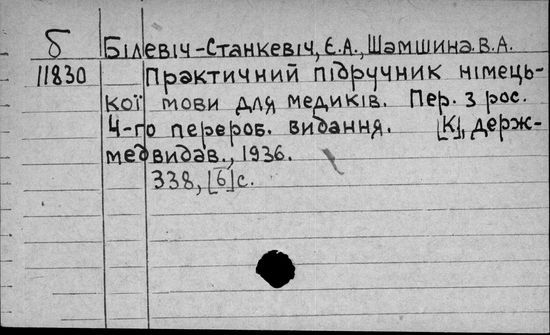 б
Білевіч-Станкевіч, Є.А., Шамшина. В.А.
11830 Практичний підручник німець-
кої мови для медиків. Пер. з рос.
4-го перероб. видання. [К], держ-
медвидав., 1936.
338, [6] с.